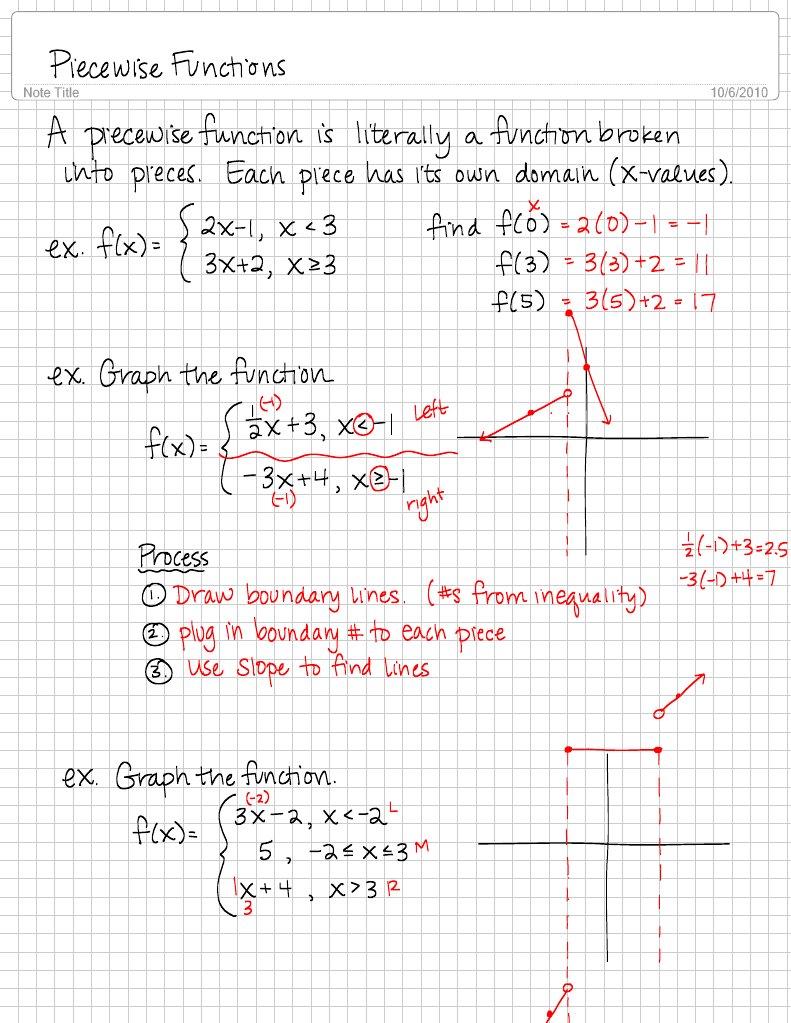 Piecewise Functions
Note Title
10/6/2010
A piecewise function is literally a function broken
into pieces. Each piece has its own domain (x-values).
ex. f(x) = { 2x-1, x < 3
3x+2, x ≥ 3
find f(0) = 2(0)-1 = -1
x
f(3) = 3(3)+2 = 11
f(5) = 3(5)+2 = 17
ex. Graph the function
(-1)
f(x) = { 1/2x+3, x < -1 Left
-3x+4, x ≥ -1
(-1) right
1/2(-1)+3=2.5
-3(-1)+4=7
Process
1. Draw boundary lines. (#s from inequality)
2. plug in boundary # to each piece
3. Use slope to find lines
ex. Graph the function.
(-2)
f(x) = { 3x-2, x < -2 L
5, -2 ≤ x ≤ 3 M
1x+4, x > 3 R
3